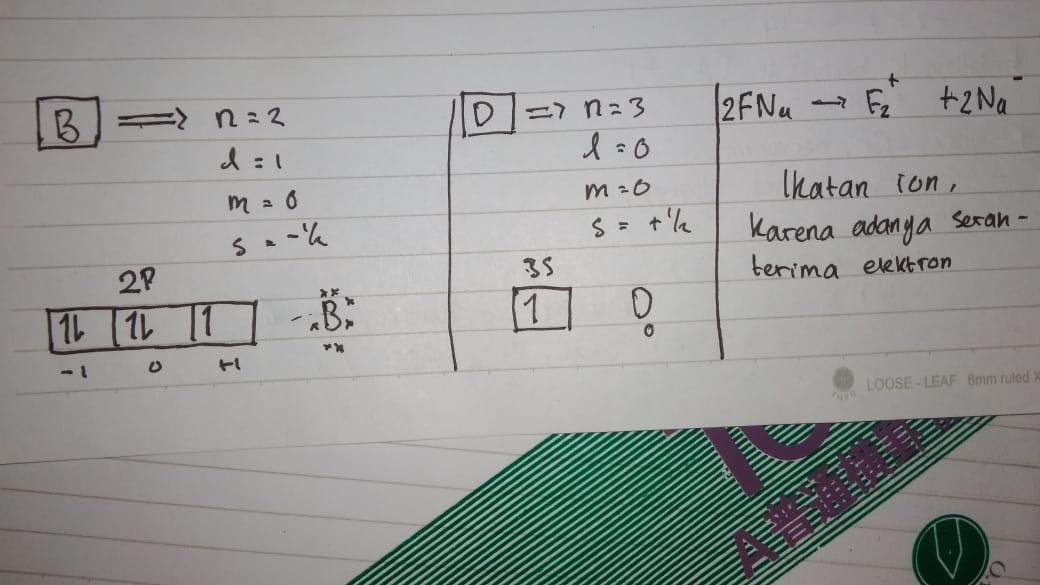 B ⟹ n = 2
l = 1
m = 0
s = -½
2P
1⇂ 1⇂ 1
-1 0 +1
B
D ⇒ n = 3
l = 0
m = 0
s = +½
3S
1
D
2FNa → F₂⁺ + 2Na⁻
Ikatan ion,
karena adanya serah-
terima elektron
TOYO
LOOSE-LEAF 6mm ruled X
A普通横罫